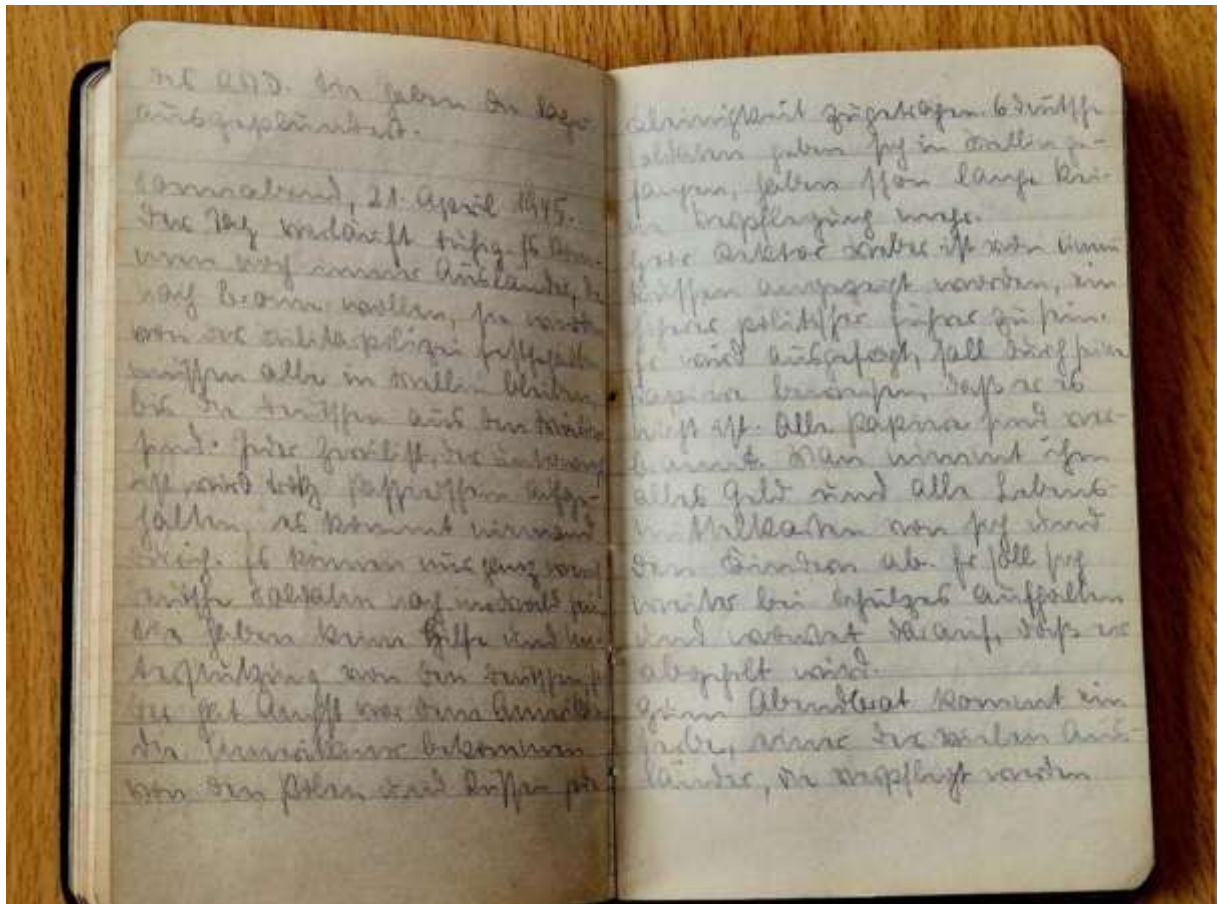 des RAD. Sie haben die Lager
ausgeplündert.
Sonnabend, 21. April 1945.
Der Tag verläuft ruhig. Es kom-
men noch immer Ausländer, die
nach wollen, sie werden
von der Militärpolizei festgehalten
müssen alle in Wallin bleiben
bis die Deutschen aus den Wäldern
sind. Jeder Zivilist, der unterwegs
ist, wird trotz Passierschein aufge-
halten, es kommt niemand
durch. Es können nur ganz wenig
deutsche Soldaten noch im Wald sein
Sie haben keine Hilfe und Un-
terstützung von den Deutschen,
der hat Angst vor dem Amerika
die Amerikaner bekommen
von den Polen und Russen jede
Kleinigkeit zugetragen. 6 deutsche
Soldaten geben sich in Wallin ge-
fangen, haben schon lange kei-
ne Verpflegung mehr.
Herr Rektor ist von einem
Russen angezeigt worden, ein
politischer Führer zu sein.
Er wird ausgefragt, soll durch seine
Papiere beweisen, daß er es
nicht ist. Alle Papiere sind ver-
brannt. Man nimmt ihm
alles Geld und alle Lebens-
mittelkarten von sich und
den Kindern ab. Er soll sich
weiter bei Schulzes aufhalten
und wartet darauf, daß er
abgeholt wird.
Zum Abendbrot kommt ein
einer der vielen Aus-
länder, die verpflegt werden